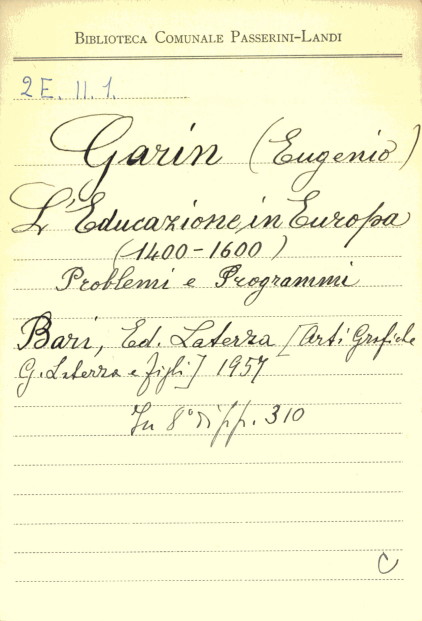 BIBLIOTECA COMUNALE PASSERINI-LANDI
2E. II. 1.
Garin (Eugenio)
L'Educazione in Europa
(1400-1600)
Problemi e Programmi
Bari, Ed. Laterza [Arti Grafiche
G. Laterza e figli] 1957
In 8° di pp. 310
C